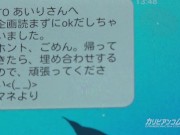 TO あいりさんへ
企画読まずにokだしちゃ
いました。
ホント、ごめん。帰って
きたら、埋め合わせする
ので、頑張ってくださ
い<(_ _)>
マネより